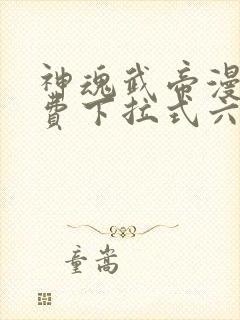 神魂武帝漫
费下拉式六
童嵩